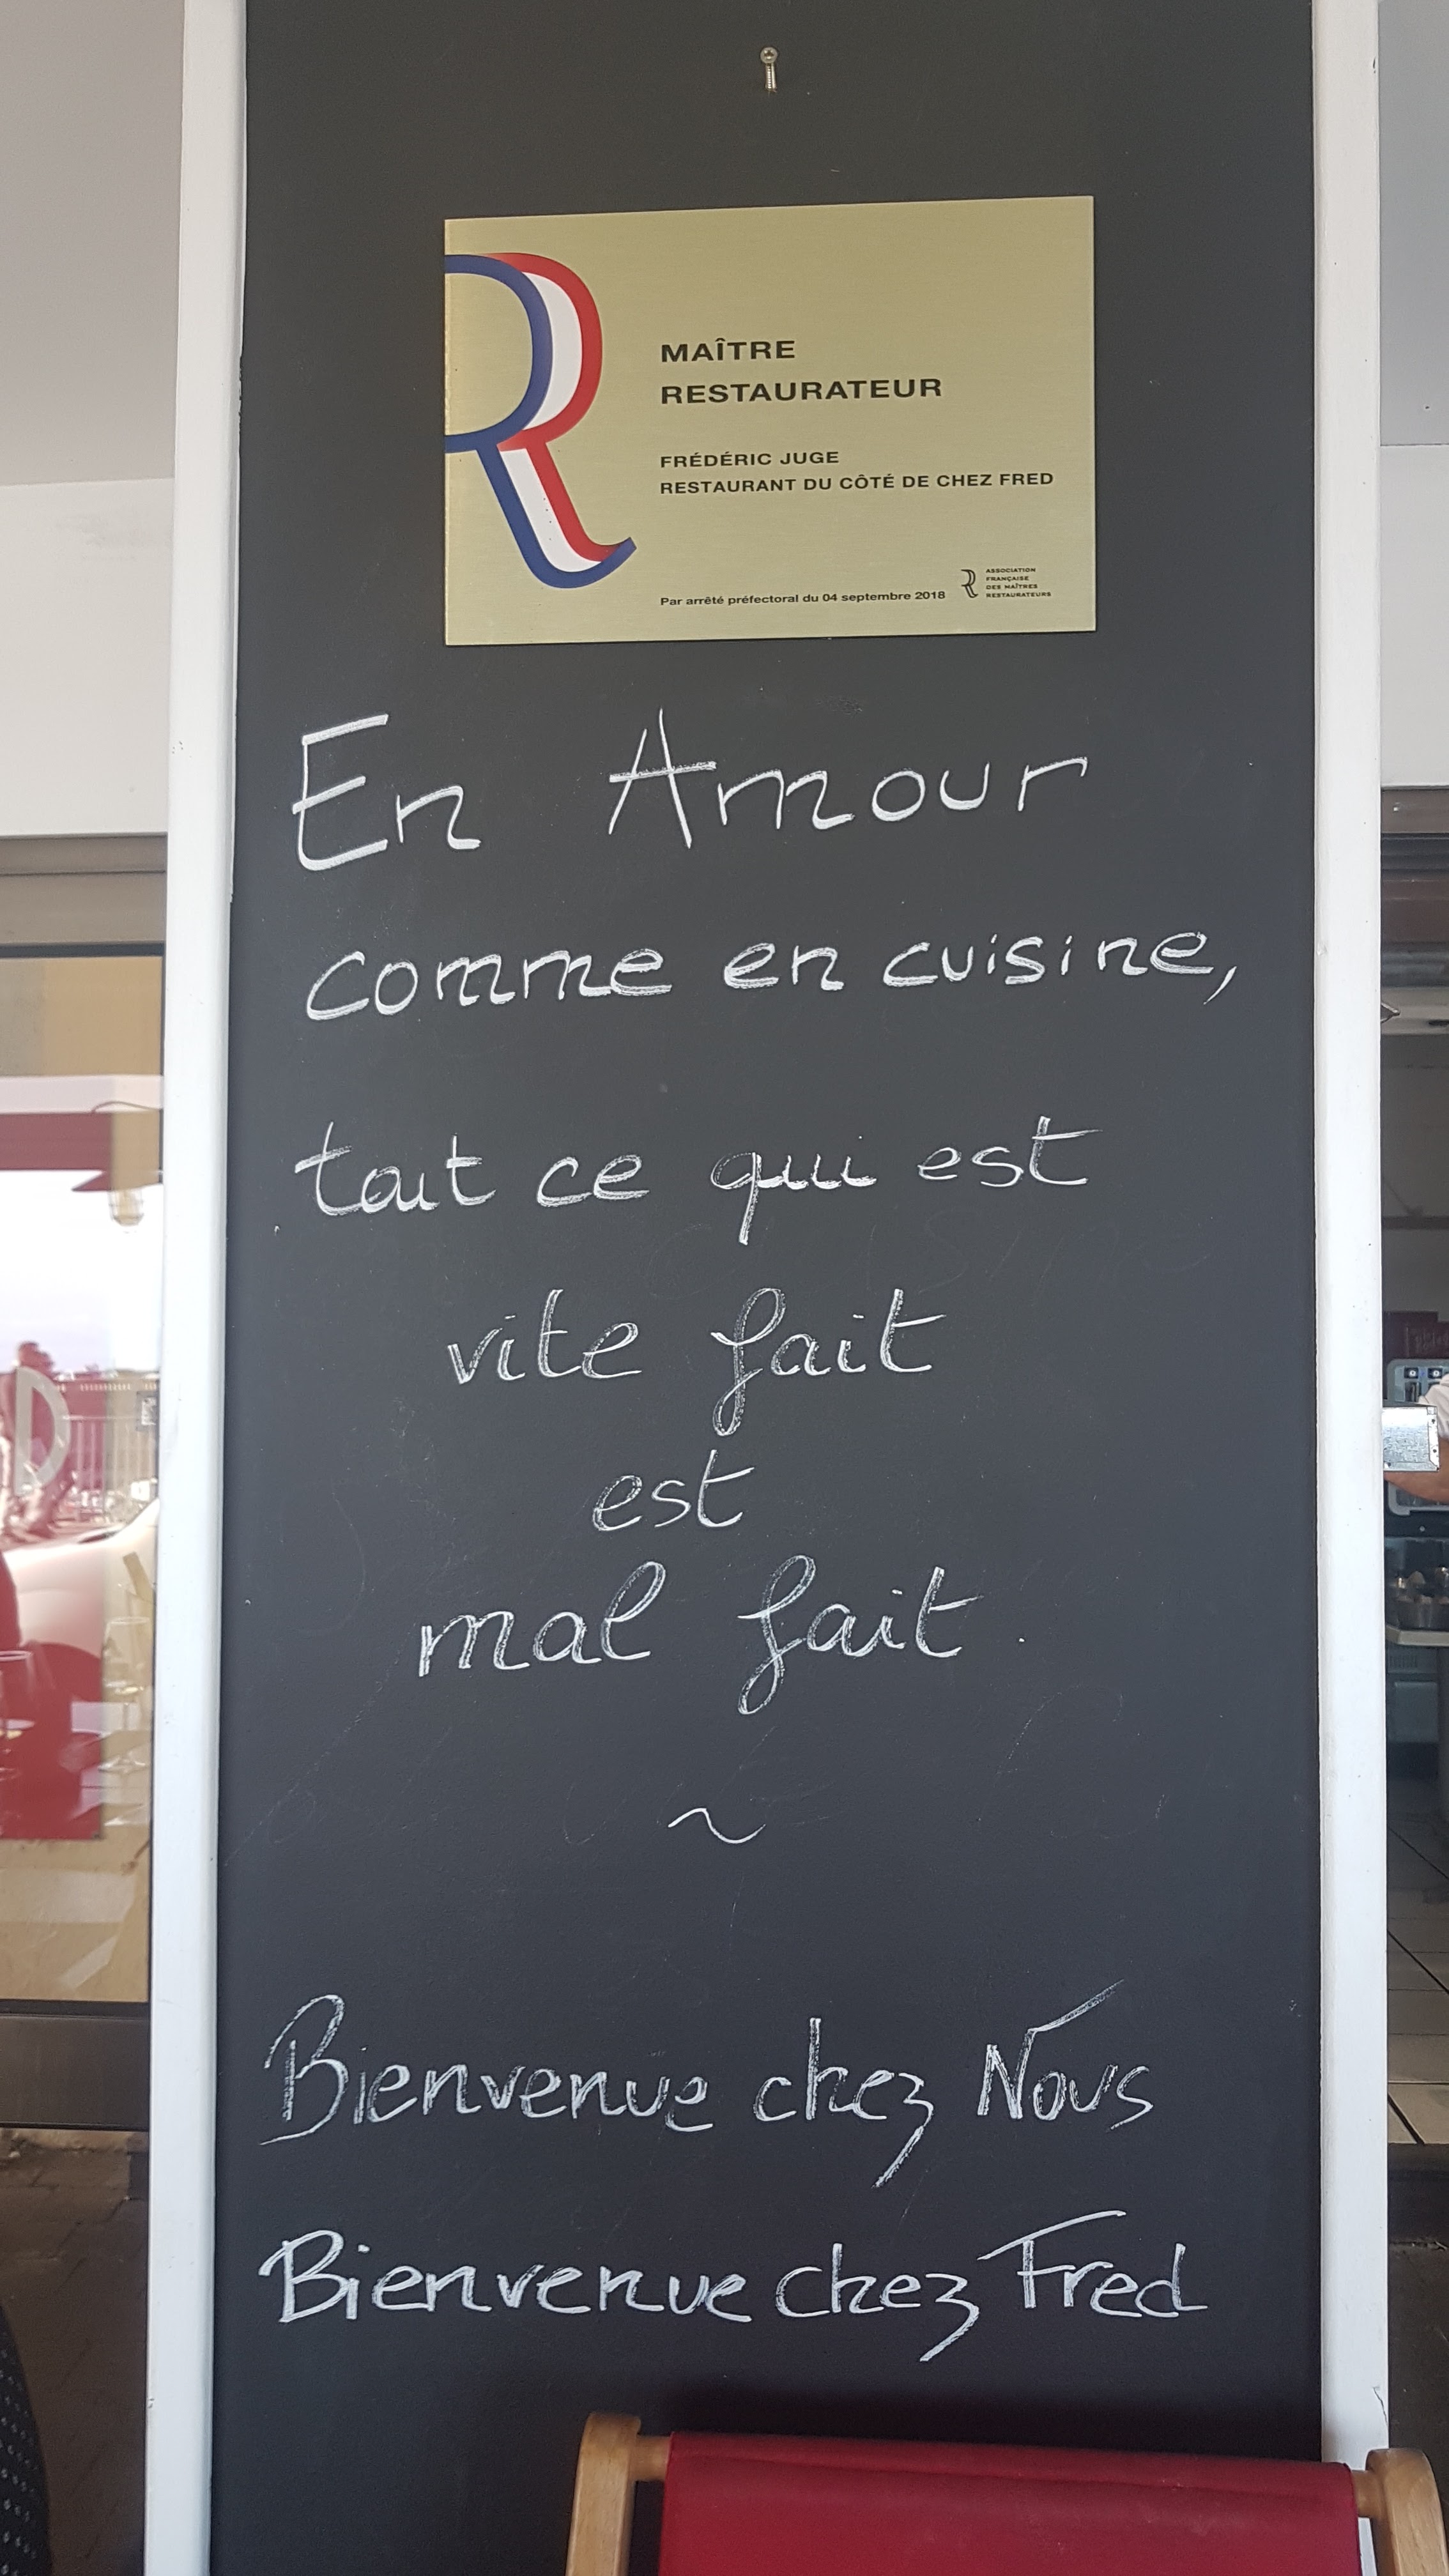 MAÎTRE
RESTAURATEUR
FRÉDÉRIC JUGE
RESTAURANT DU CÔTÉ DE CHEZ FRED
Par arrêté préfectoral du 04 septembre 2018
ASSOCIATION
FRANÇAISE
DES MAÎTRES
RESTAURATEURS
En Amour
comme en cuisine,
tout ce qui est
vite fait
est
mal fait.
~
Bienvenue chez Nous
Bienvenue chez Fred